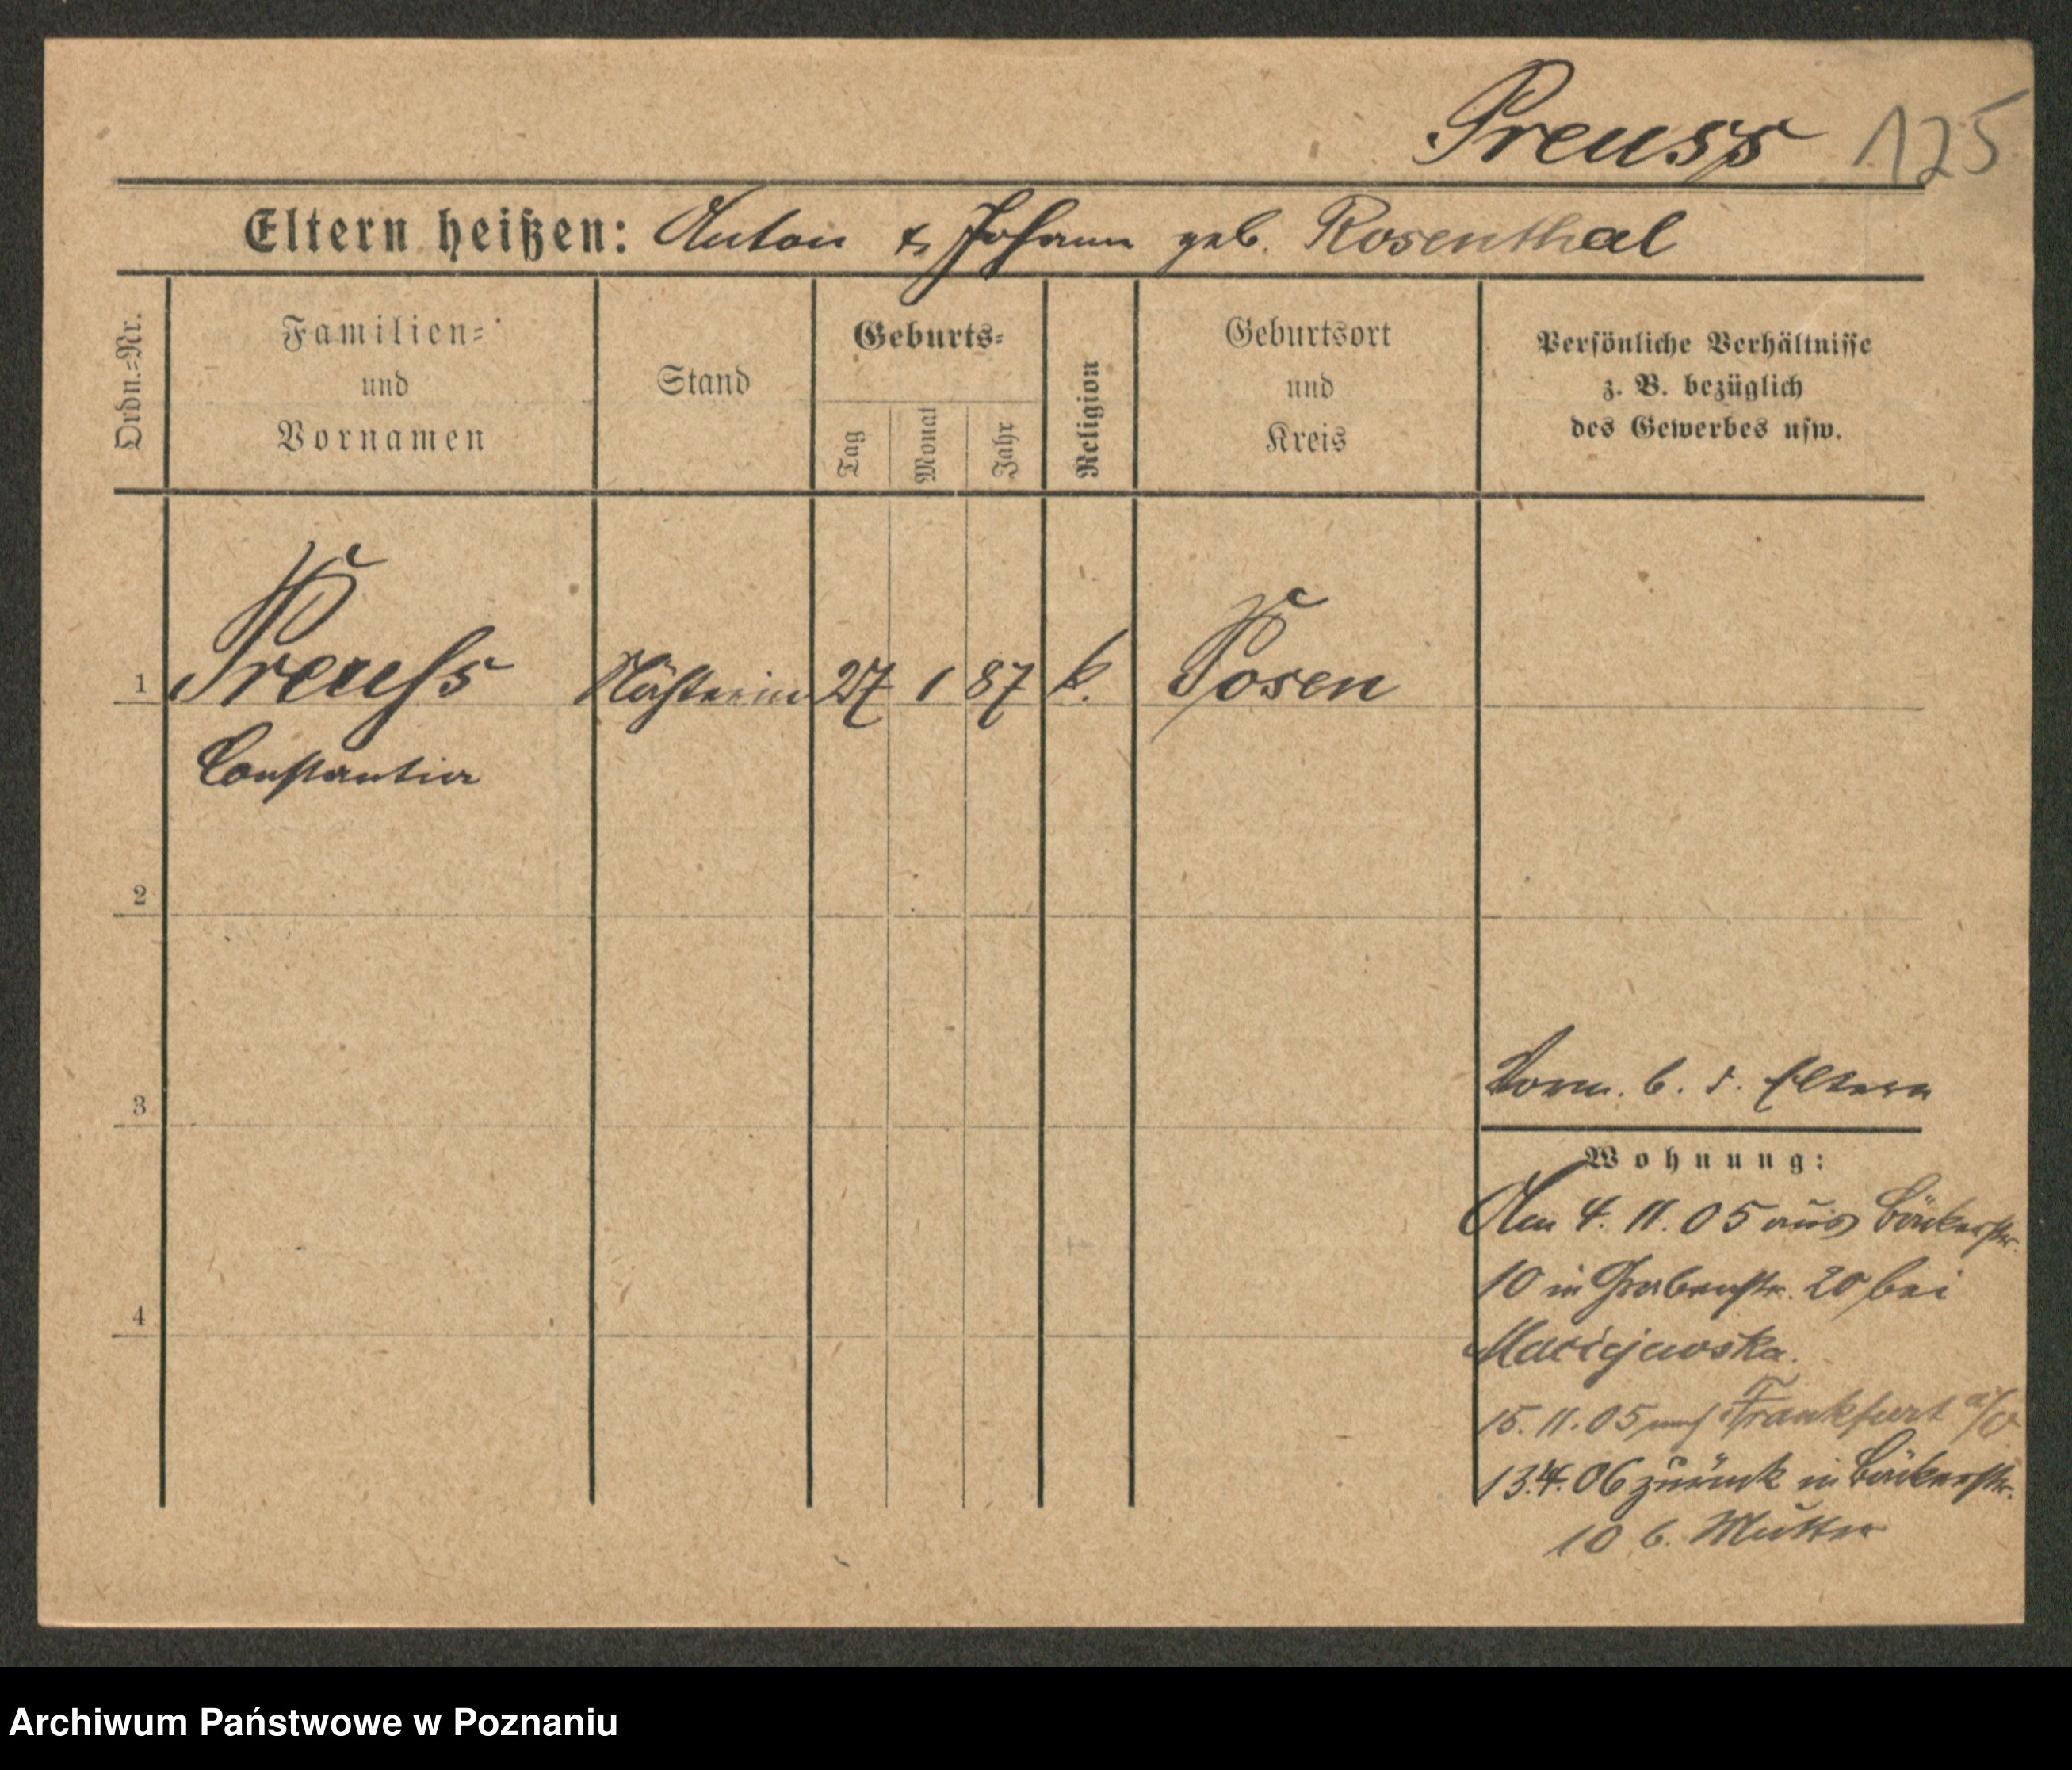 Preuss 125
Eltern heißen: Anton & Johanna geb. Rosenthal
Ordn.-Nr.
Familien-
und
Vornamen
Stand
Geburts-
Tag
Monat
Jahr
Religion
Geburtsort
und
Kreis
Persönliche Verhältnisse
z. B. bezüglich
des Gewerbes usw.
1 Preuss Nähterin 27 1 87 k. Posen
Constantia
2
3
4
Vorm. b. d. Eltern
Wohnung:
Am 4. 11. 05 aus Bäckerstr.
10 in Grabenstr. 20 bei
Maciejewska.
15. 11. 05 nach Frankfurt a/O
13.4.06 zurück in Bäckerstr.
10 b. Mutter
Archiwum Państwowe w Poznaniu